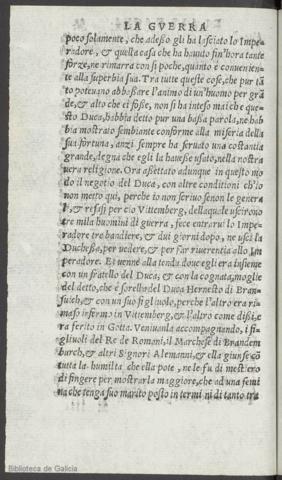 LA GVERRA
poco solamente, che adesso gli ha lasciato lo Impe-
radore, & quella casa che ha hauuto fin'hora tante
forze, ne rimarra con sì poche, quanto è conuenien-
te alla superbia sua. Tra tutte queste cose, che pur tã
to poteuano abbassare l'animo di un'huomo per grã
de, & alto che ei fosse, non si ha inteso mai che que-
sto Duca, habbia detto pur una bassa parola, ne hab
bia mostrato sembiante conforme alla miseria della
sua fortuna, anzi sempre ha seruato una costantia
grande, degna che egli la hauesse usato, nella nostra
uera religione. Ora assettato adunque in questo mo
do il negotio del Duca, con altre conditioni ch'io
non metto qui, perche io non scriuo senon le genera
li, & resasi per ciò Vittemberg, della quale uscirono
tre mila huomini di guerra, fece entrarui lo Impe
radore tre bandiere, & dui giorni dopo, ne uscì la
Duchessa, per uedere, & per far riuerentia allo Im
peradore. Et uenne alla tenda doue egli era insieme
con un fratello del Duca, & con la cognata, moglie
del detto, che è sorella del Duca Hernesto di Bran-
suich, & con un suo figliuolo, perche l'altro era ri-
maso infermo in Vittemberg, & l'altro come dissi, e
ra ferito in Gotta. Veniuanla accompagnando, i fi-
gliuoli del Re de Romani, il Marchese di Brandem
burch, & altri Signori Alemanni, & ella giunse cõ
tutta la humiltà che ella pote, ne le fu di mestiero
di fingere per mostrarla maggiore, che ad una femi
na che tenga suo marito posto in termini di tanto tra
Biblioteca de Galicia